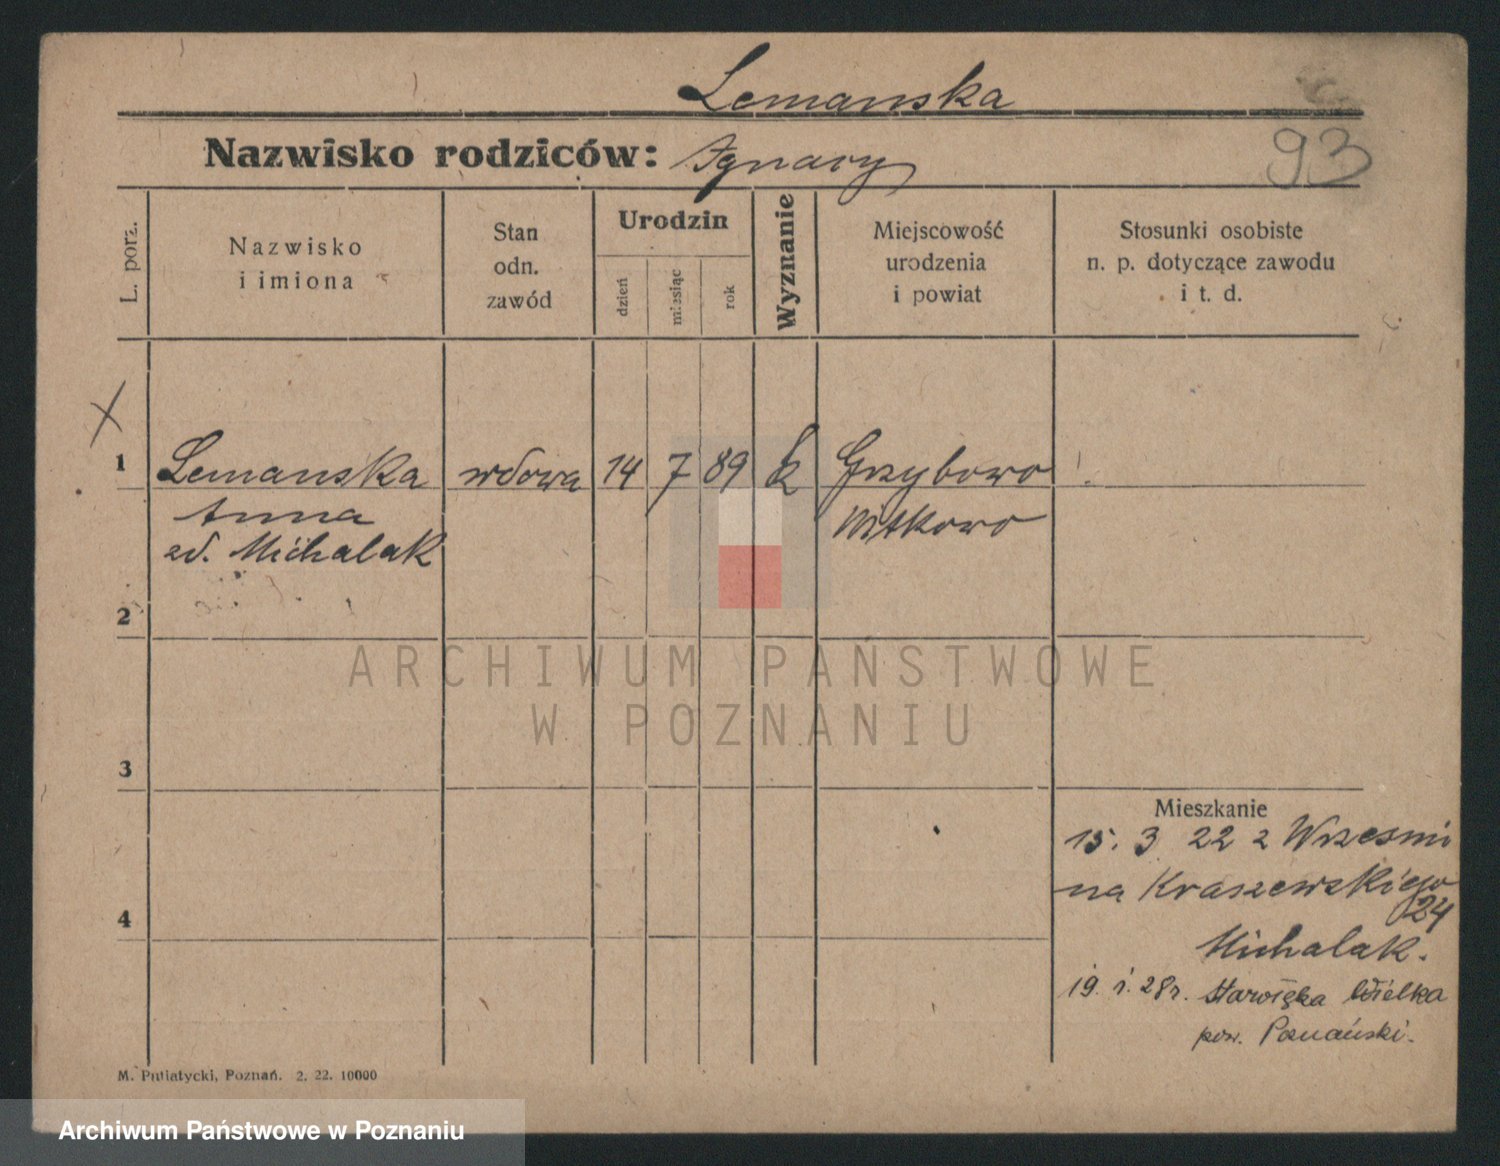 Lemanska
Nazwisko rodziców: Ignacy
93
L. porz.
Nazwisko
i imiona
Stan
odn.
zawód
Urodzin
dzień
miesiąc
rok
Wyznanie
Miejscowość
urodzenia
i powiat
Stosunki osobiste
n. p. dotyczące zawodu
i t. d.
X
1 Lemanska wdowa 14 7 89 k Grzybowo
Anna Witkowo
zd. Michalak
2
ARCHIWUM PAŃSTWOWE
W POZNANIU
3
Mieszkanie
15. 3 22 z Wrzesni
na Kraszewskiego
24
4
Michalak.
19. 1. 28r. Starołęka Wielka
pow. Poznański.
M. Putiatycki, Poznań. 2. 22. 10000
Archiwum Państwowe w Poznaniu